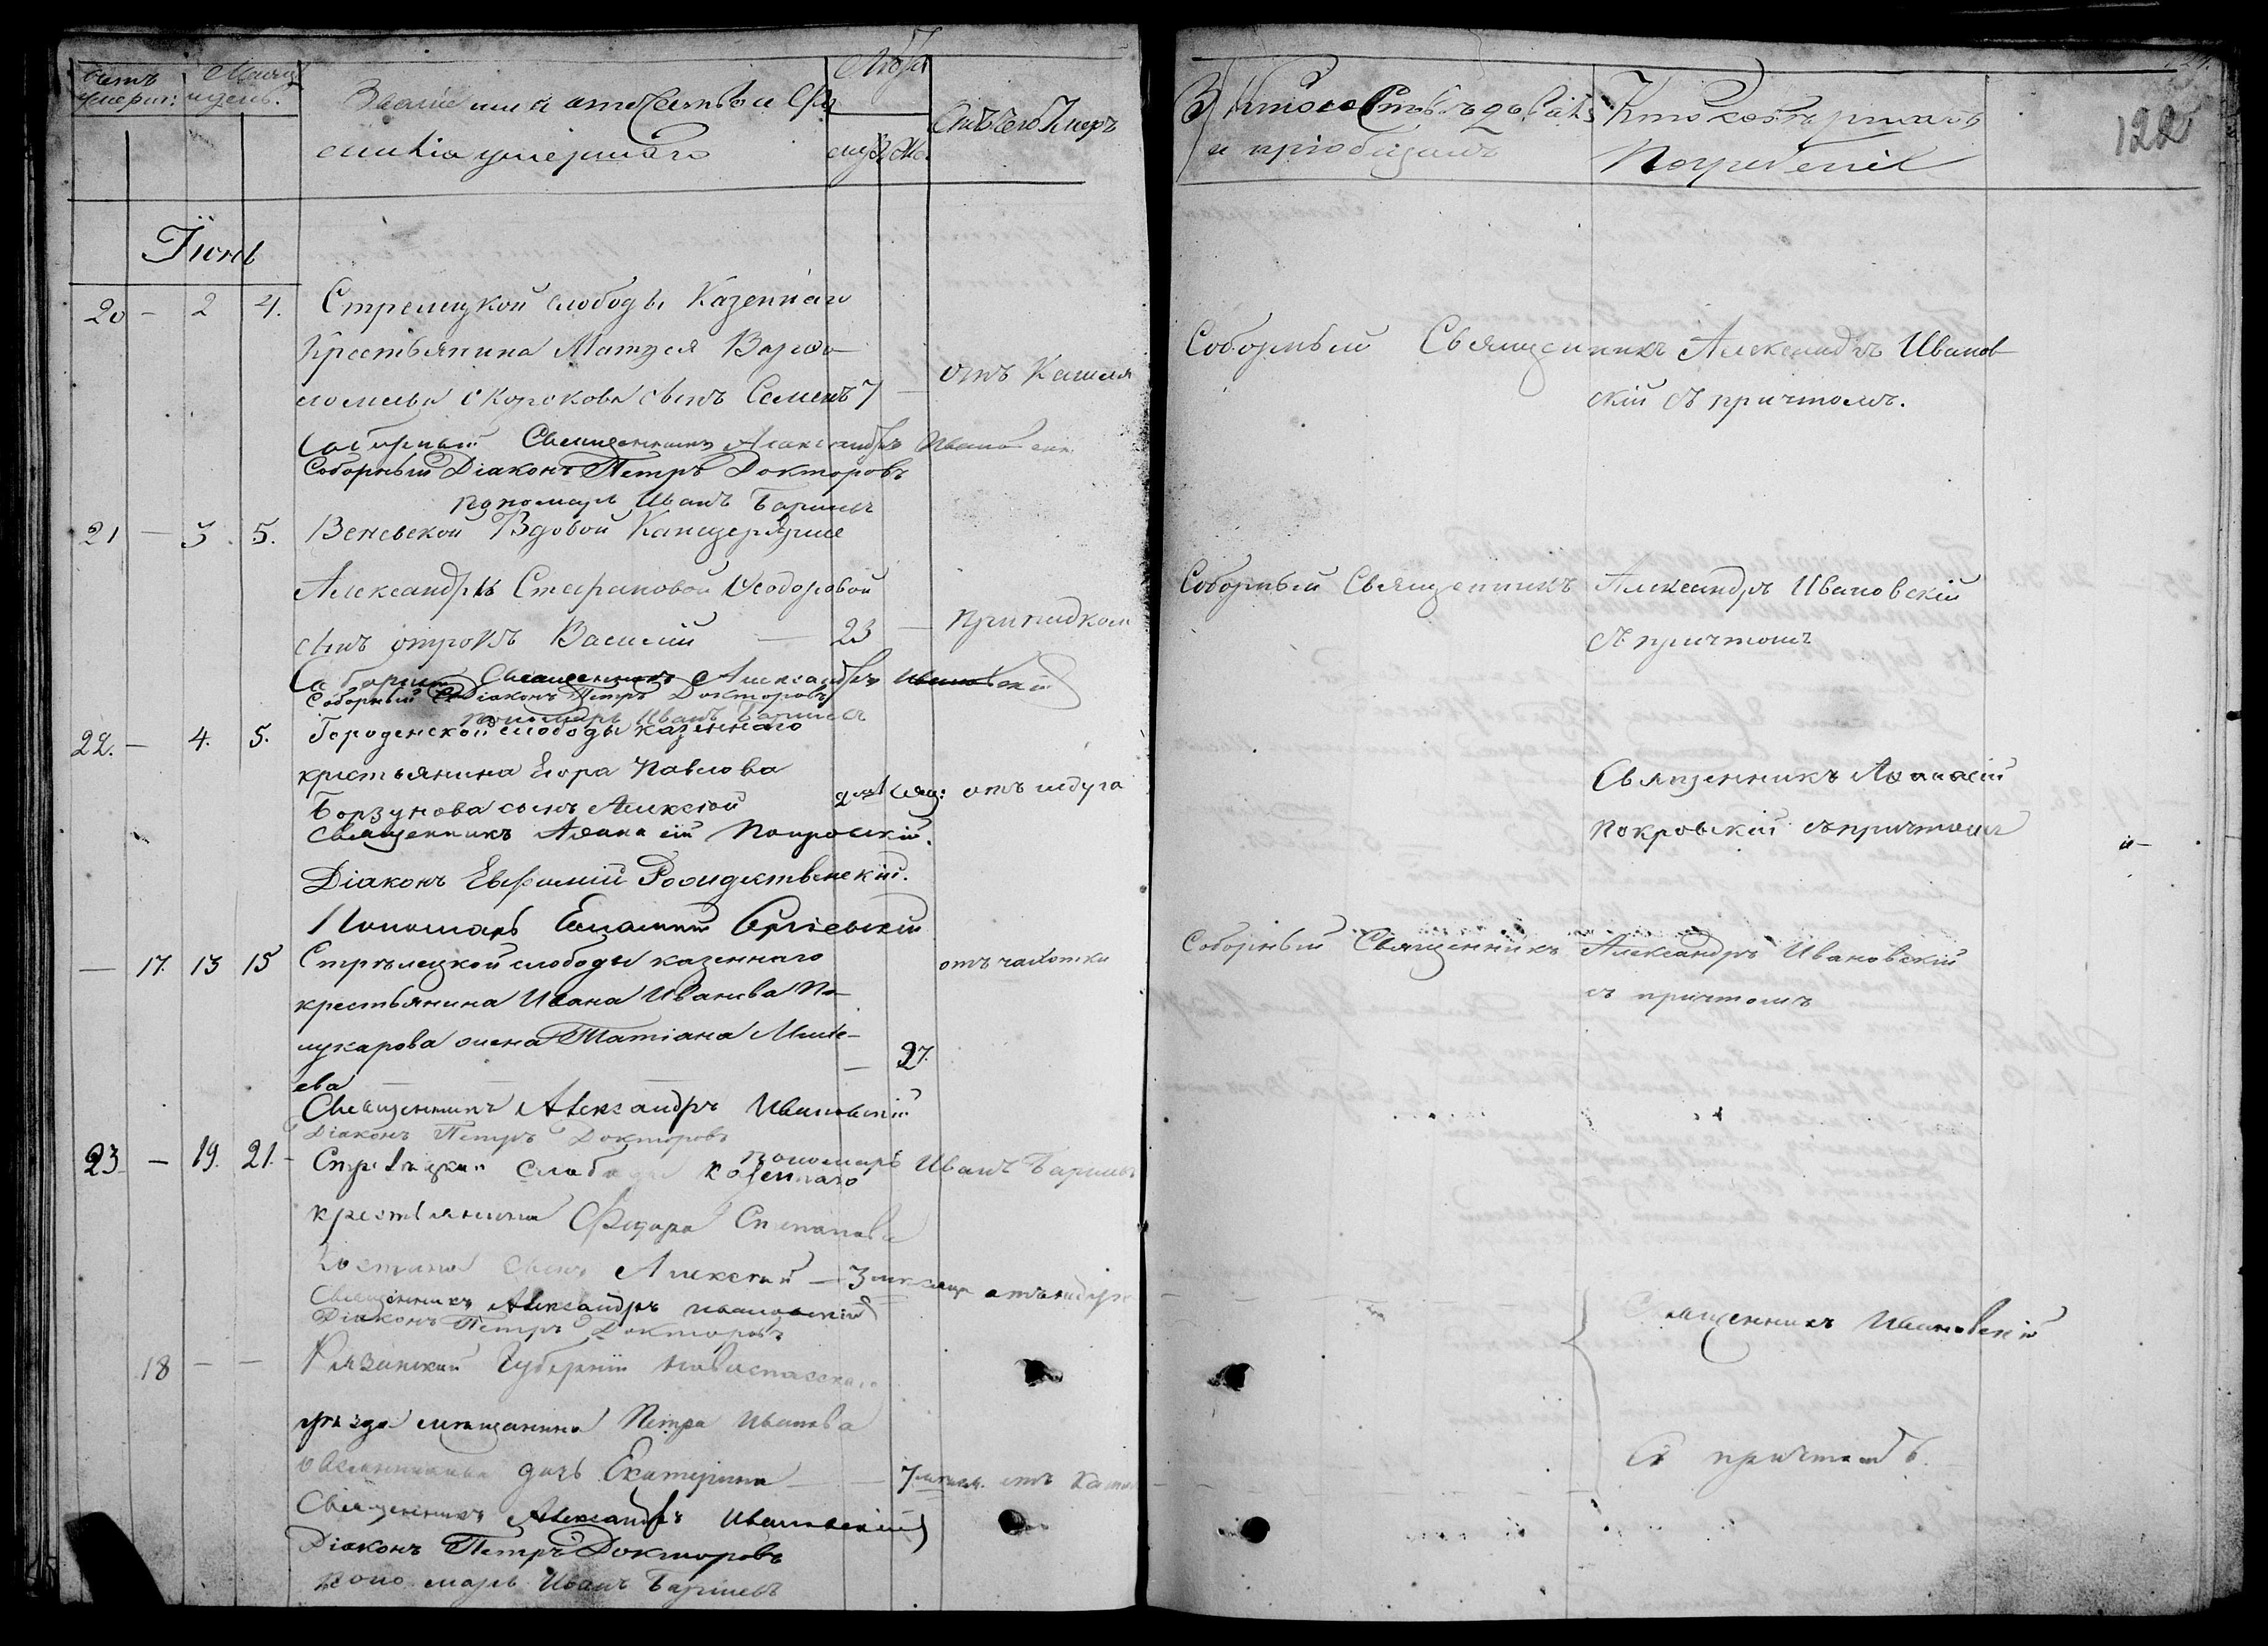 Счетъ умерш: Месяцъ и день.
Званіе имя отечество и фа
милія умершаго
Лѣта
муж. Же.
Отъ чего Умеръ
Кто исповѣдовалъ
и пріобщалъ
Кто совершалъ
Погребеніе
122
Іюнь
20 — 2 4. Стрелецкой слободы Казеннаго
Крестьянина Матуея Варѳо-
ломеева сынъ Семенъ 7 — отъ Кашля
Соборный Священникъ Александръ Иванов-
скій съ причтомъ.
Соборный Священникъ Александръ Ивановскій
Соборный Діаконъ Петръ Докторовъ
пономарь Иванъ Барышев
21 — 3. 5. Веневской Вдовой Канцеляршѣ
Александры Стефановой Ѳеодоровой
сынъ отрокъ Василій — 23 — Припадкомъ
Соборный Священникъ Александръ Ивановскій
съ причтомъ
Соборный Священникъ Александръ Ивановскій
Соборный Діаконъ Петръ Докторовъ
пономарь Иванъ Барышев
22. — 4. 5. Городенской слободы казеннаго
крестьянина Егора Павлова
Борзунова сынъ Алексѣй отъ недуга
Священникъ Аѳанасій
Покровскій съ причтомъ
Священникъ Аѳанасій Покровскій.
Діаконъ Евѳимій Рождественскій.
Пономарь Сергіевскій
— 17. 13 15 Стрѣлецкой слободы казеннаго отъ чахотки
крестьянина Ивана Иванова По-
лукарова жена Татіана Михе-
ева — 27.
Соборный Священникъ Александръ Ивановскій
съ причтомъ
Священникъ Александръ Ивановскій
Діаконъ Петръ Докторовъ
пономарь Иванъ Барышев
23 — 19. 21. Стрѣлецкой слободы казеннаго
крестьянина Ѳедора Степанова
сынъ Алексей — 3 месяца отъ недуга
Священникъ Александръ Ивановскій
Діаконъ Петръ Докторовъ
18 — — Рязанской Губерніи
уѣзда мещанина Петра Иванова
дочь Екатерина — 7 месяц. отъ Кашля
Священникъ Ивановскій
съ причтомъ.
Священникъ Александръ Ивановскій
Діаконъ Петръ Докторовъ
пономарь Иванъ Барышевъ